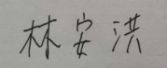 林安洪